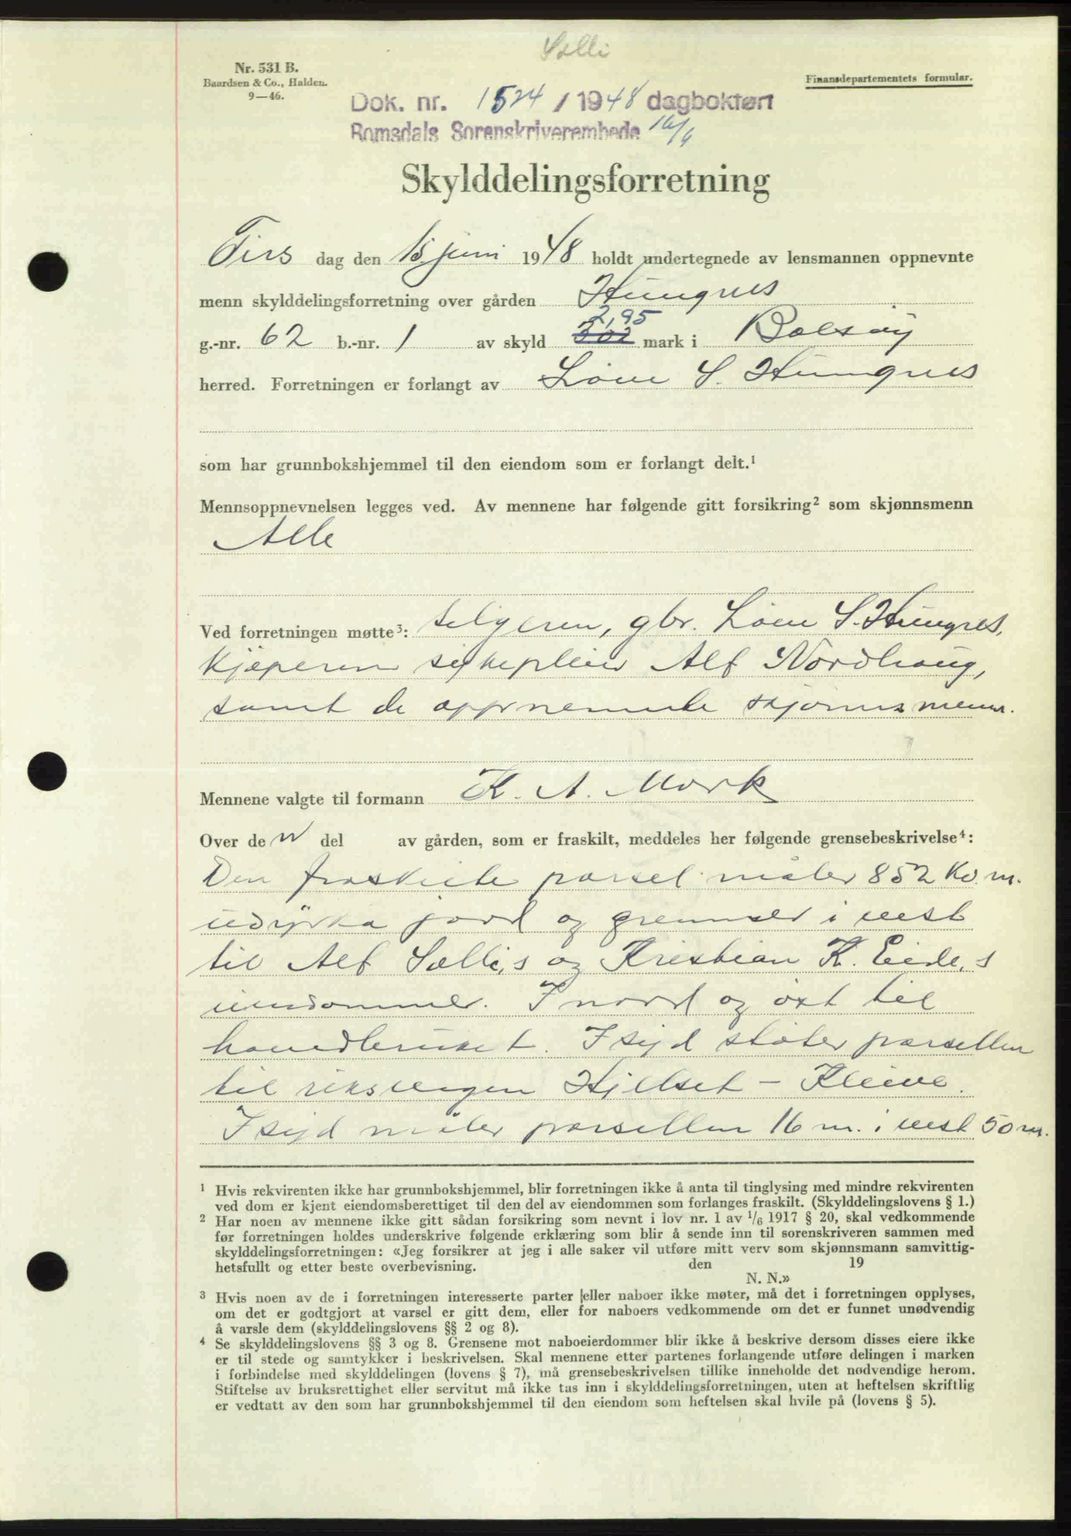 Solli
Nr. 531 B.
Baardsen & Co., Halden.
9—46.
Finansdepartementets formular.
Dok. nr. 1524 / 1948 dagbokført
Romsdals Sorenskriverembede 16/6
Skylddelingsforretning
Tirs dag den 15 juni 1948 holdt undertegnede av lensmannen oppnevnte
menn skylddelingsforretning over gården Hungnes
2,95
g.-nr. 62 b.-nr. 1 av skyld 302 mark i Bolsøy
herred. Forretningen er forlangt av Lovise S. Hungnes
som har grunnbokshjemmel til den eiendom som er forlangt delt.¹
Mennsoppnevnelsen legges ved. Av mennene har følgende gitt forsikring² som skjønnsmenn
Alle
Ved forretningen møtte³: selgeren, gbr. S. Hungnes,
kjøperen sykepleier Alf Nordhaug,
samt de oppnevnte skjønnsmenn.
Mennene valgte til formann K. A. Mork
Over den del av gården, som er fraskilt, meddeles her følgende grensebeskrivelse⁴:
Den fraskilte parsel måler 852 kv. m.
udyrka jord og grenser i vest
til Alf Solli,s og Kristian K. Eide,s
eiendommer. I nord og øst til
hovedbruket. I syd støter parsellen
til riksveigen Hjelset - Kleive.
I syd måler parsellen 16 m. i vest 50 m.
¹ Hvis rekvirenten ikke har grunnbokshjemmel, blir forretningen ikke å anta til tinglysing med mindre rekvirenten
ved dom er kjent eiendomsberettiget til den del av eiendommen som forlanges fraskilt. (Skylddelingslovens § 1.)
² Har noen av mennene ikke gitt sådan forsikring som nevnt i lov nr. 1 av 1/6 1917 § 20, skal vedkommende
før forretningen holdes underskrive følgende erklæring som blir å sende inn til sorenskriveren sammen med
skylddelingsforretningen: «Jeg forsikrer at jeg i alle saker vil utføre mitt verv som skjønnsmann samvittig-
hetsfullt og etter beste overbevisning. den 19
N. N.»
³ Hvis noen av de i forretningen interesserte parter eller naboer ikke møter, må det i forretningen opplyses,
om det er godtgjort at varsel er gitt dem, eller for naboers vedkommende om det er funnet unødvendig
å varsle dem (skylddelingslovens §§ 2 og 8).
⁴ Se skylddelingslovens §§ 3 og 8. Grensene mot naboeierdommer blir ikke å beskrive dersom disses eiere ikke
er til stede og samtykker i beskrivelsen. Skal mennene etter partenes forlangende utføre delingen i marken
i forbindelse med skylddelingen (lovens § 7), må grensebeskrivelsen tillike inneholde det nødvendige herom.
Stiftelse av bruksrettighet eller servitut må ikke tas inn i skylddelingsforretningen, uten at heftelsen skriftlig
er vedtatt av den som har grunnbokshjemmel til den eiendom som heftelsen skal hvile på (lovens § 5).